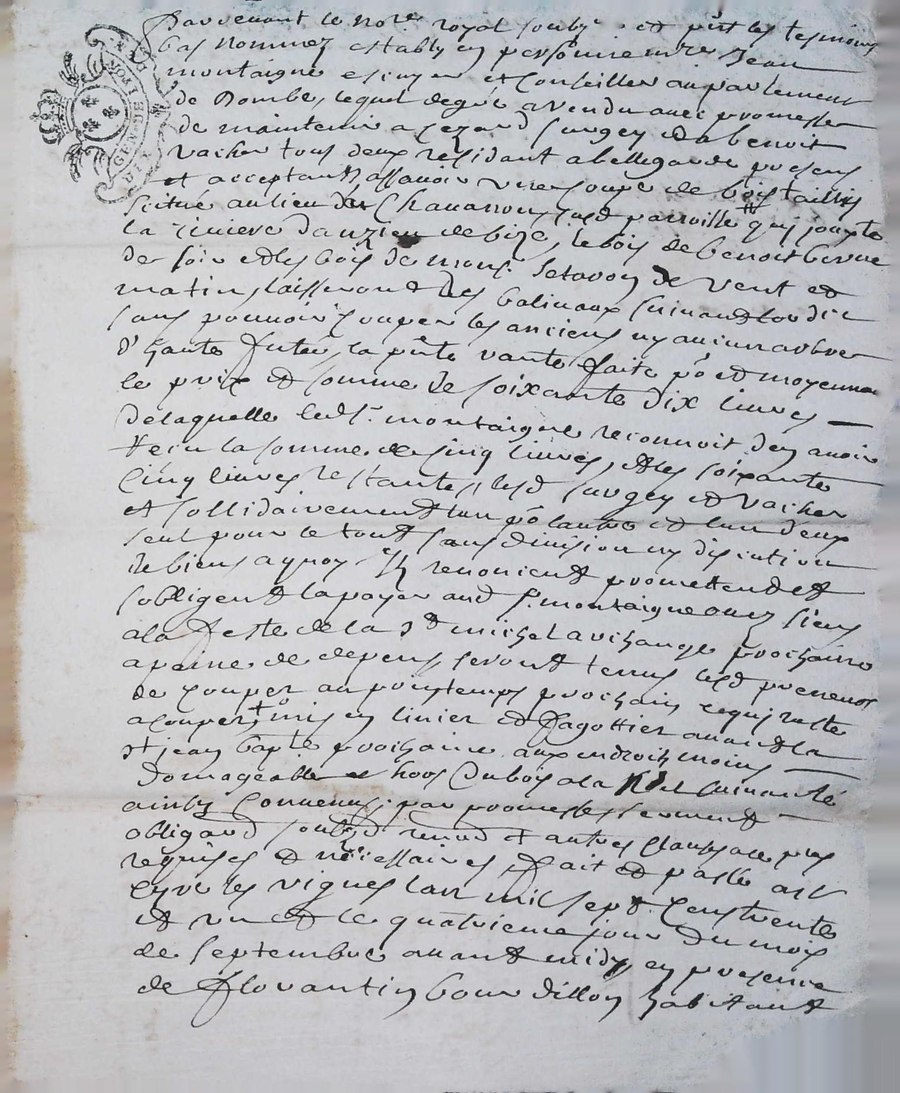 Pardevant le no.re royal soubz.e et pñt les tesmoins
bas nommez estably en personne m.re Jean
montaigne escuyer et Conseiller au parlement
de Dombe, lequel degré a vendu avec promesse
de maintenir a Cezard Surgey et a benoit
vacher tous deux residant a bellegarde presens
et acceptant, assavoir une coupe de bois taillis
scitué au lieu de Chavanon susd parroisse qui jouxte
la riviere d'anzieu de bize, le bois de benoit
de soir et les bois de mons.r de vent et
matin, laisseront les balivaux suivant lordce
sans pouvoir couper les anciens ny aucun arbre
d'haute futée, la pñte vante faite po et moyennant
le prix et somme de soixante dix livres
de laquelle led s.r montaigne reconnoit den avoir
receu la somme de cinq livres, et les soixante
cinq livres restantes, lesd Surgey et vacher
et sollidairement lun po lautre et lun d'eux
seul pour le tout sans division ny discution
de biens a quoy ils renoncent promettent et
sobligent la payer aud s.r montaigne ou es siens
a la feste de la st michel archange prochaine
a peine de depens, seront tenus lesd preneurs
de couper au printemps prochain ce qui reste
a couper, et mis en linier et fagottier avant la
st jean bapte prochaine aux endroits moins
domageable et hors du bois a la Noel suivante
ainsy convenus par promesses serment
obligaõ soubz renoñ et autres clauses a ce plus
requises et necessaires, fait et passé a St
Cyre les vignes lan mil sept cens trente
et un et le quatrieme jour du mois
de septembre avant midy en presence
de florantin bourdillon habitant
GEN DE LYON